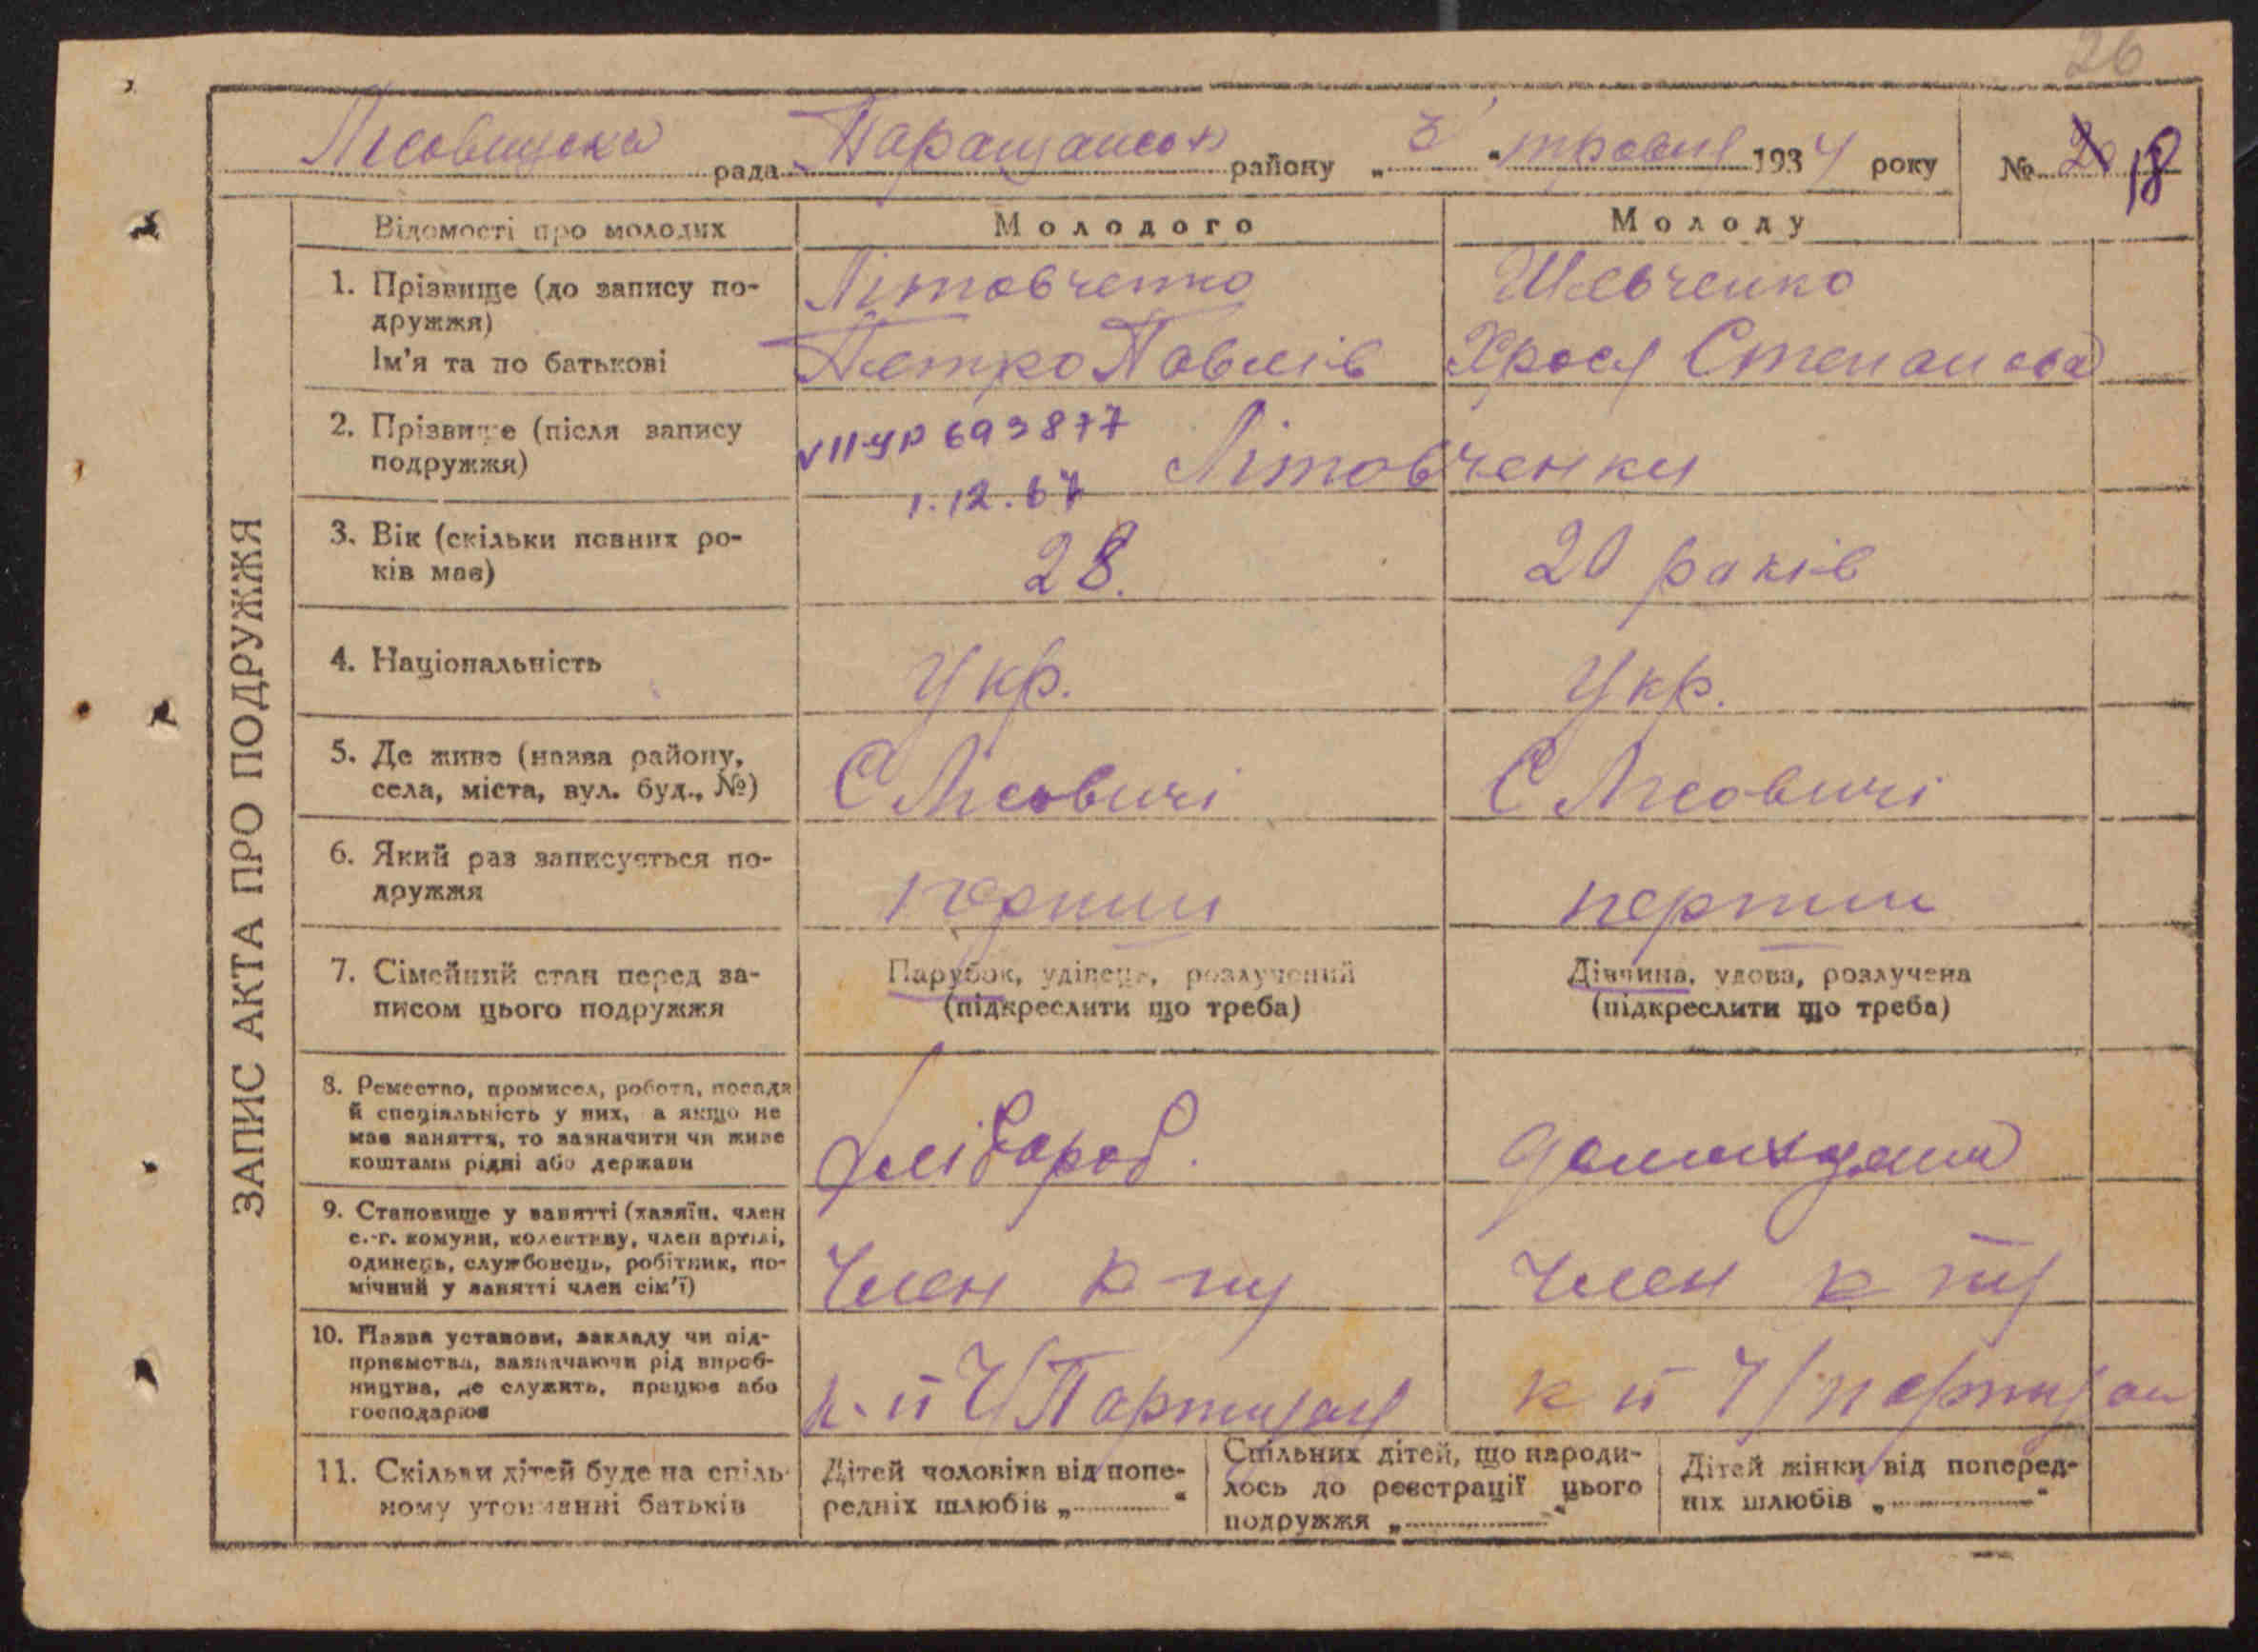 26
Лісовицька рада Таращанськ району „ 3 “ травня 1934 року № 20 18
ЗАПИС АКТА ПРО ПОДРУЖЖЯ
Відомості про молодих Молодого Молоду
1. Прізвище (до запису по-
дружжя)
Літовченко Шевченко
Ім'я та по батькові Петро Павлів Хрося Степанова
2. Прізвище (після запису
подружжя)
693877
1.12.67
Літовченки
3. Вік (скільки повних ро-
ків має)
28. 20 років
4. Національність Укр. Укр.
5. Де живе (назва району,
села, міста, вул. буд., №)
С Лісовичі С Лісовичі
6. Який раз записується по-
дружжя
перший перший
7. Сімейний стан перед за-
писом цього подружжя
Парубок, удівець, розлучений
(підкреслити що треба)
Дівчина, удова, розлучена
(підкреслити що треба)
8. Ремество, промисел, робота, посада
й спеціальність у них, а якщо не
має заняття, то зазначити чи живе
коштами рідні або держави
Хлібороб.
9. Становище у занятті (хазяїн, член
с.-г. комуни, колективу, член артілі,
одинець, службовець, робітник, по-
мічний у занятті член сім'ї)
Член к-ту Член к-ту
10. Назва установи, закладу чи під-
приємства, зазначаючи рід вироб-
ництва, де служить, працює або
господарює
Партизан партизан
11. Скільки дітей буде на спіль-
ному утриманні батьків
Дітей чоловіка від попе-
редніх шлюбів „ “
Спільних дітей, що народи-
лось до реєстрації цього
подружжя „ “
Дітей жінки від поперед-
ніх шлюбів „ “